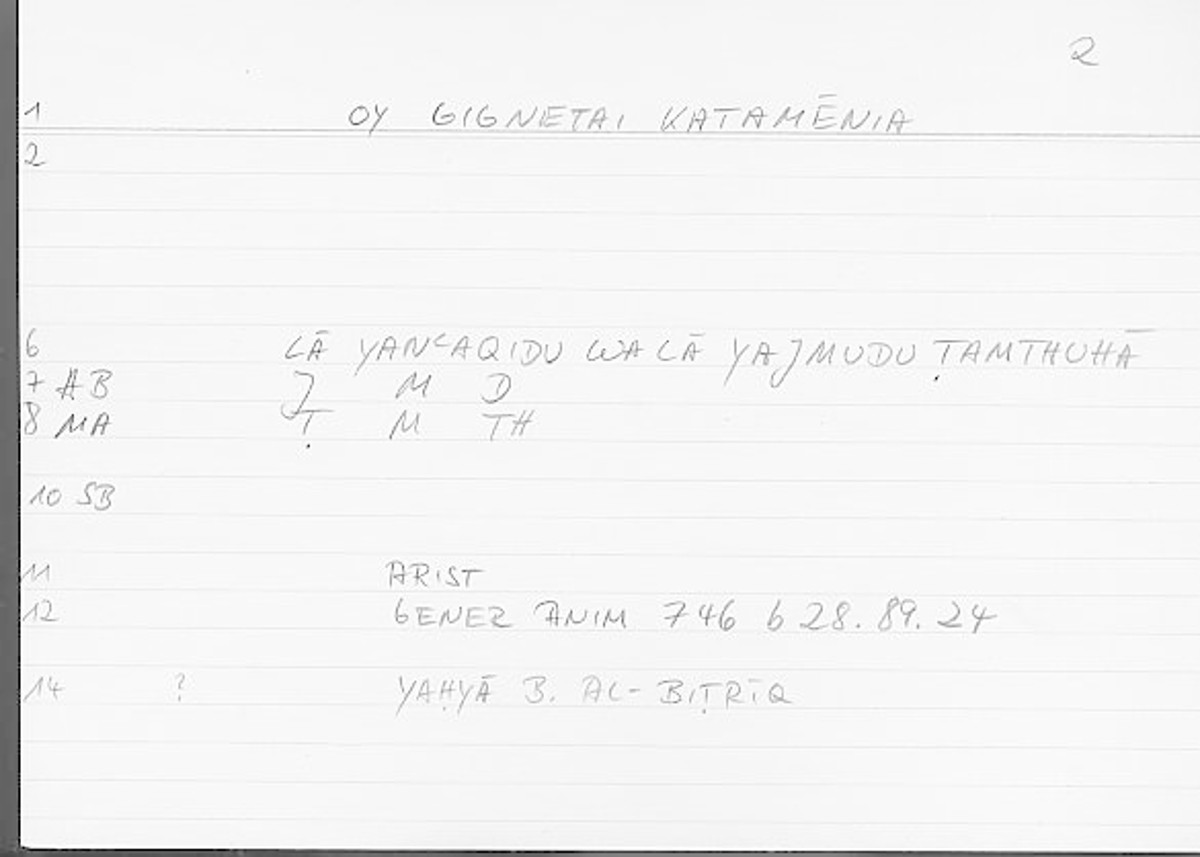 2
1 OY GIGNETAI KATAMĒNIA
2
6 LĀ YANʿAQIDU WALĀ YAJMUDU ṬAMTHUHĀ
7 AB J M D
8 MA Ṭ M TH
10 SB
11 ARIST
12 GENER ANIM 746 b 28. 89. 24
14 ? YAḤYĀ B. AL-BIṬRĪQ